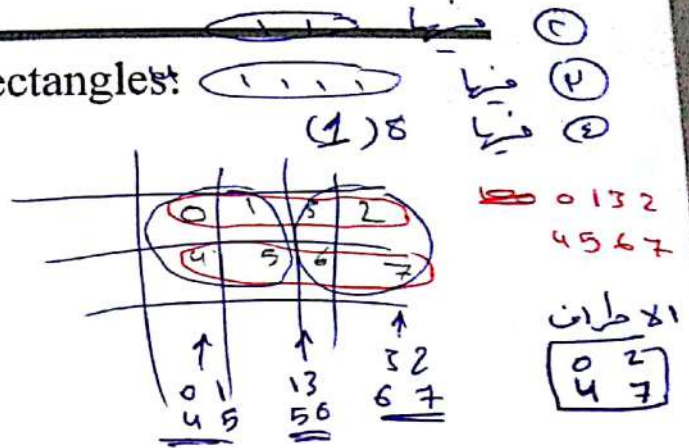 ١ ١ فيها ②
ectangles: ١ ١ ١ ١ فيها ③
(1) 8 فيها ④
0 1 3 2
4 5 6 7
0 1 3 2
4 5 6 7
الاطراف
0 2
4 7
0 1
4 5
1 3
5 6
3 2
6 7